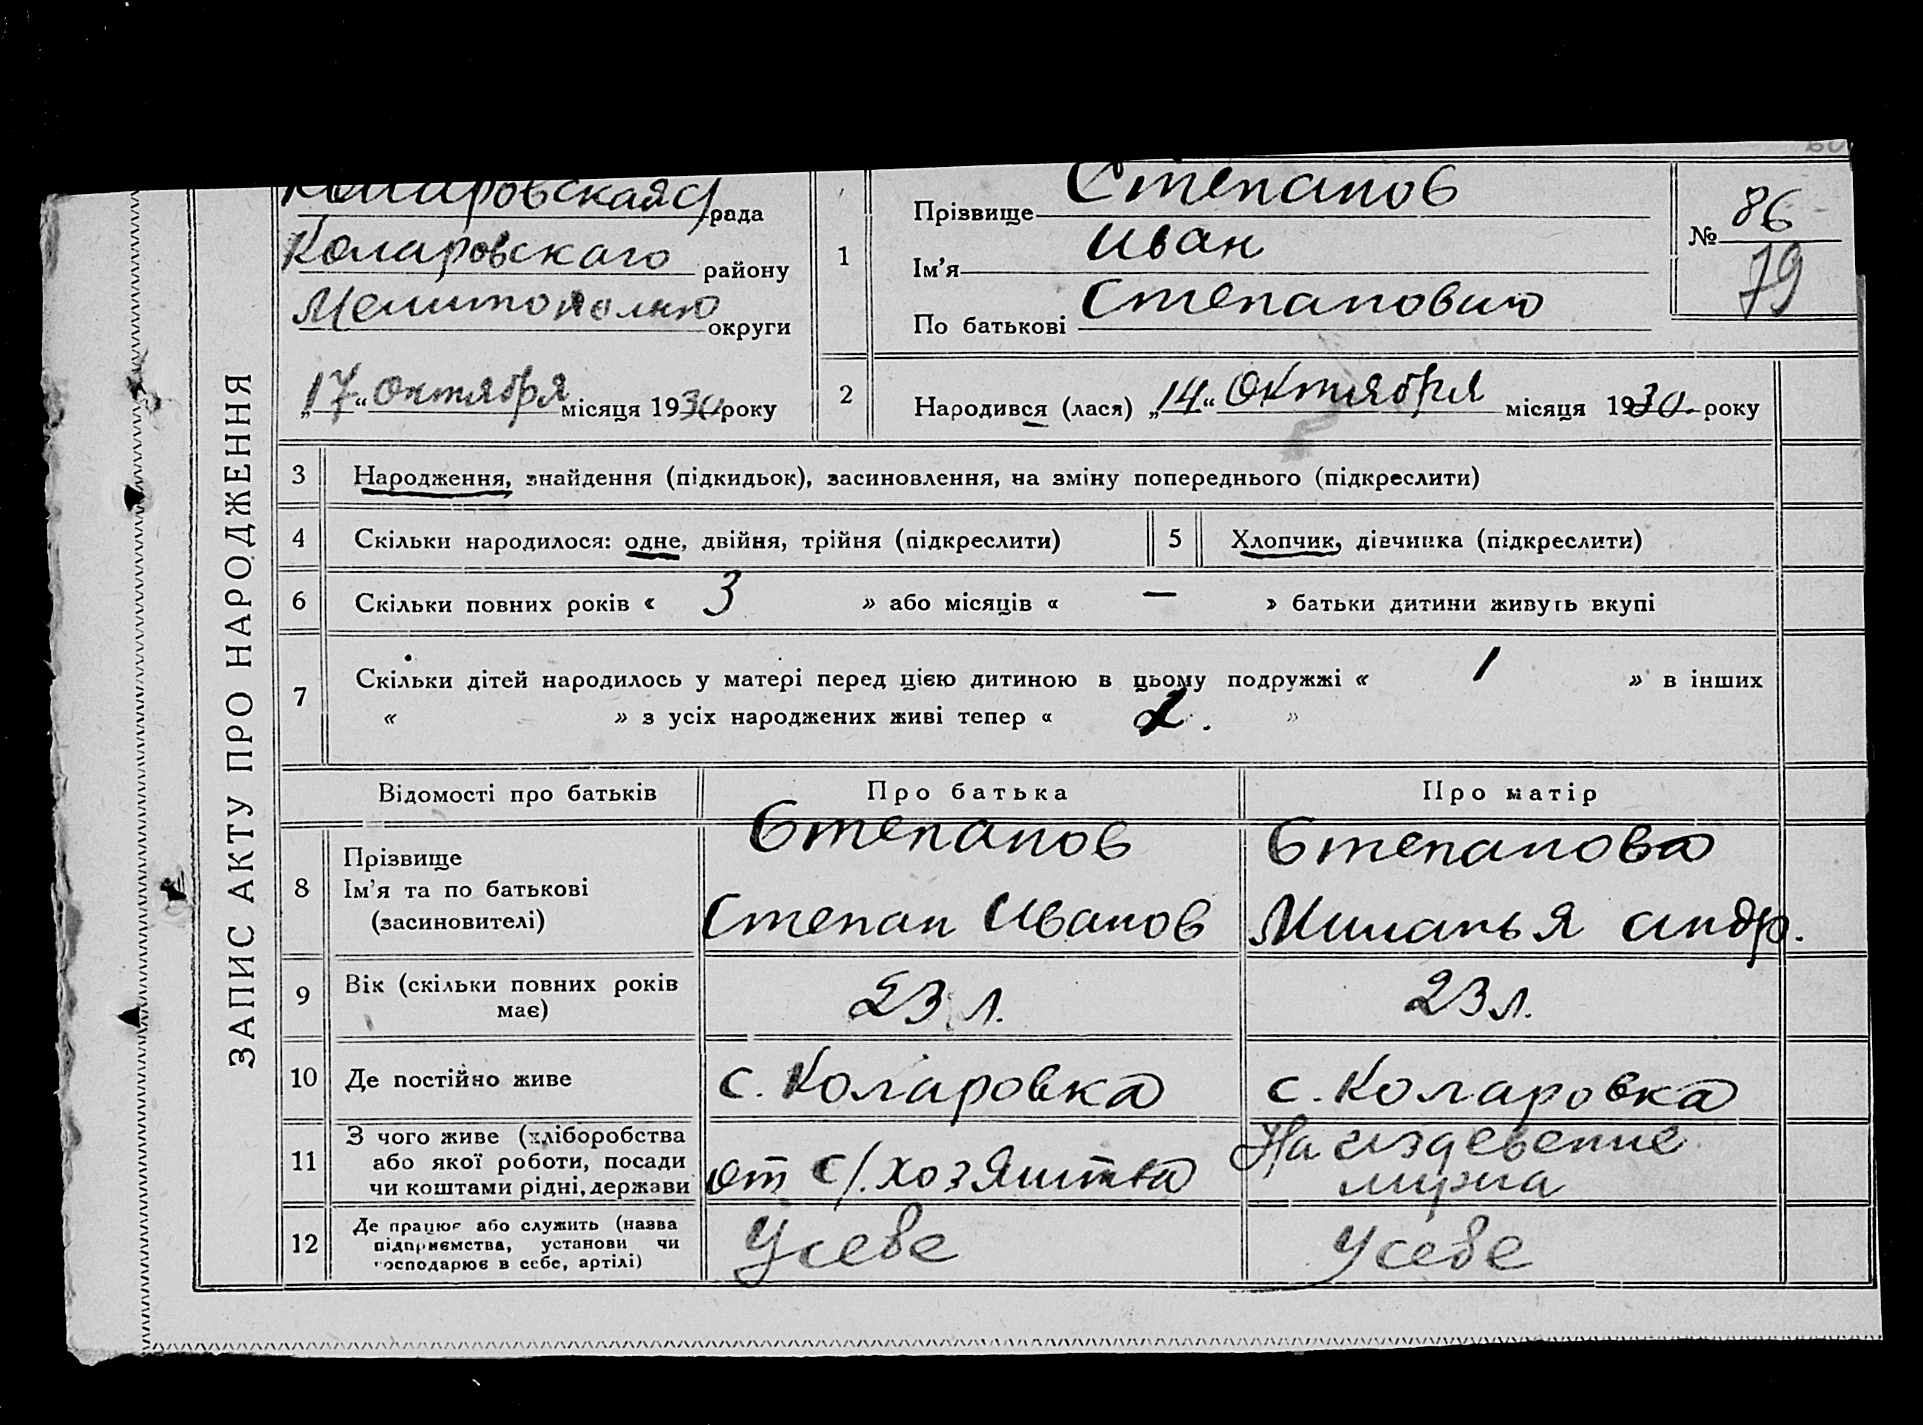 ЗАПИС АКТУ ПРО НАРОДЖЕННЯ
Коларовская с/рада
Коларовскаго району
Мелитополью округи
„17“ октября місяця 1930 року
1 Прізвище Степанов
Ім'я Иван
По батькові Степанович
№ 86
79
2 Народився (лася) „14“ Октября місяця 1930. року
3 Народження, знайдення (підкидьок), засиновлення, на зміну попереднього (підкреслити)
4 Скільки народилося: одне, двійня, трійня (підкреслити) 5 Хлопчик, дівчинка (підкреслити)
6 Скільки повних років « 3 » або місяців « — » батьки дитини живуть вкупі
7 Скільки дітей народилось у матері перед цією дитиною в цьому подружжі « 1 » в інших
« » з усіх народжених живі тепер « 2. »
Відомості про батьків Про батька Про матір
8 Прізвище
Ім'я та по батькові
(засиновителі)
Степанов
Степан Иванов
Степанова
Миланья Андр.
9 Вік (скільки повних років
має)
23 л.
23 л.
10 Де постійно живе с. Коларовка с. Коларовка
11 З чого живе (хліборобства
або якої роботи, посади
чи коштами рідні, держави
от с/. хозяйства
На издевение
мужа
12 Де працює або служить (назва
підприємства, установи чи
господарює в себе, артілі)
У себе
У себе